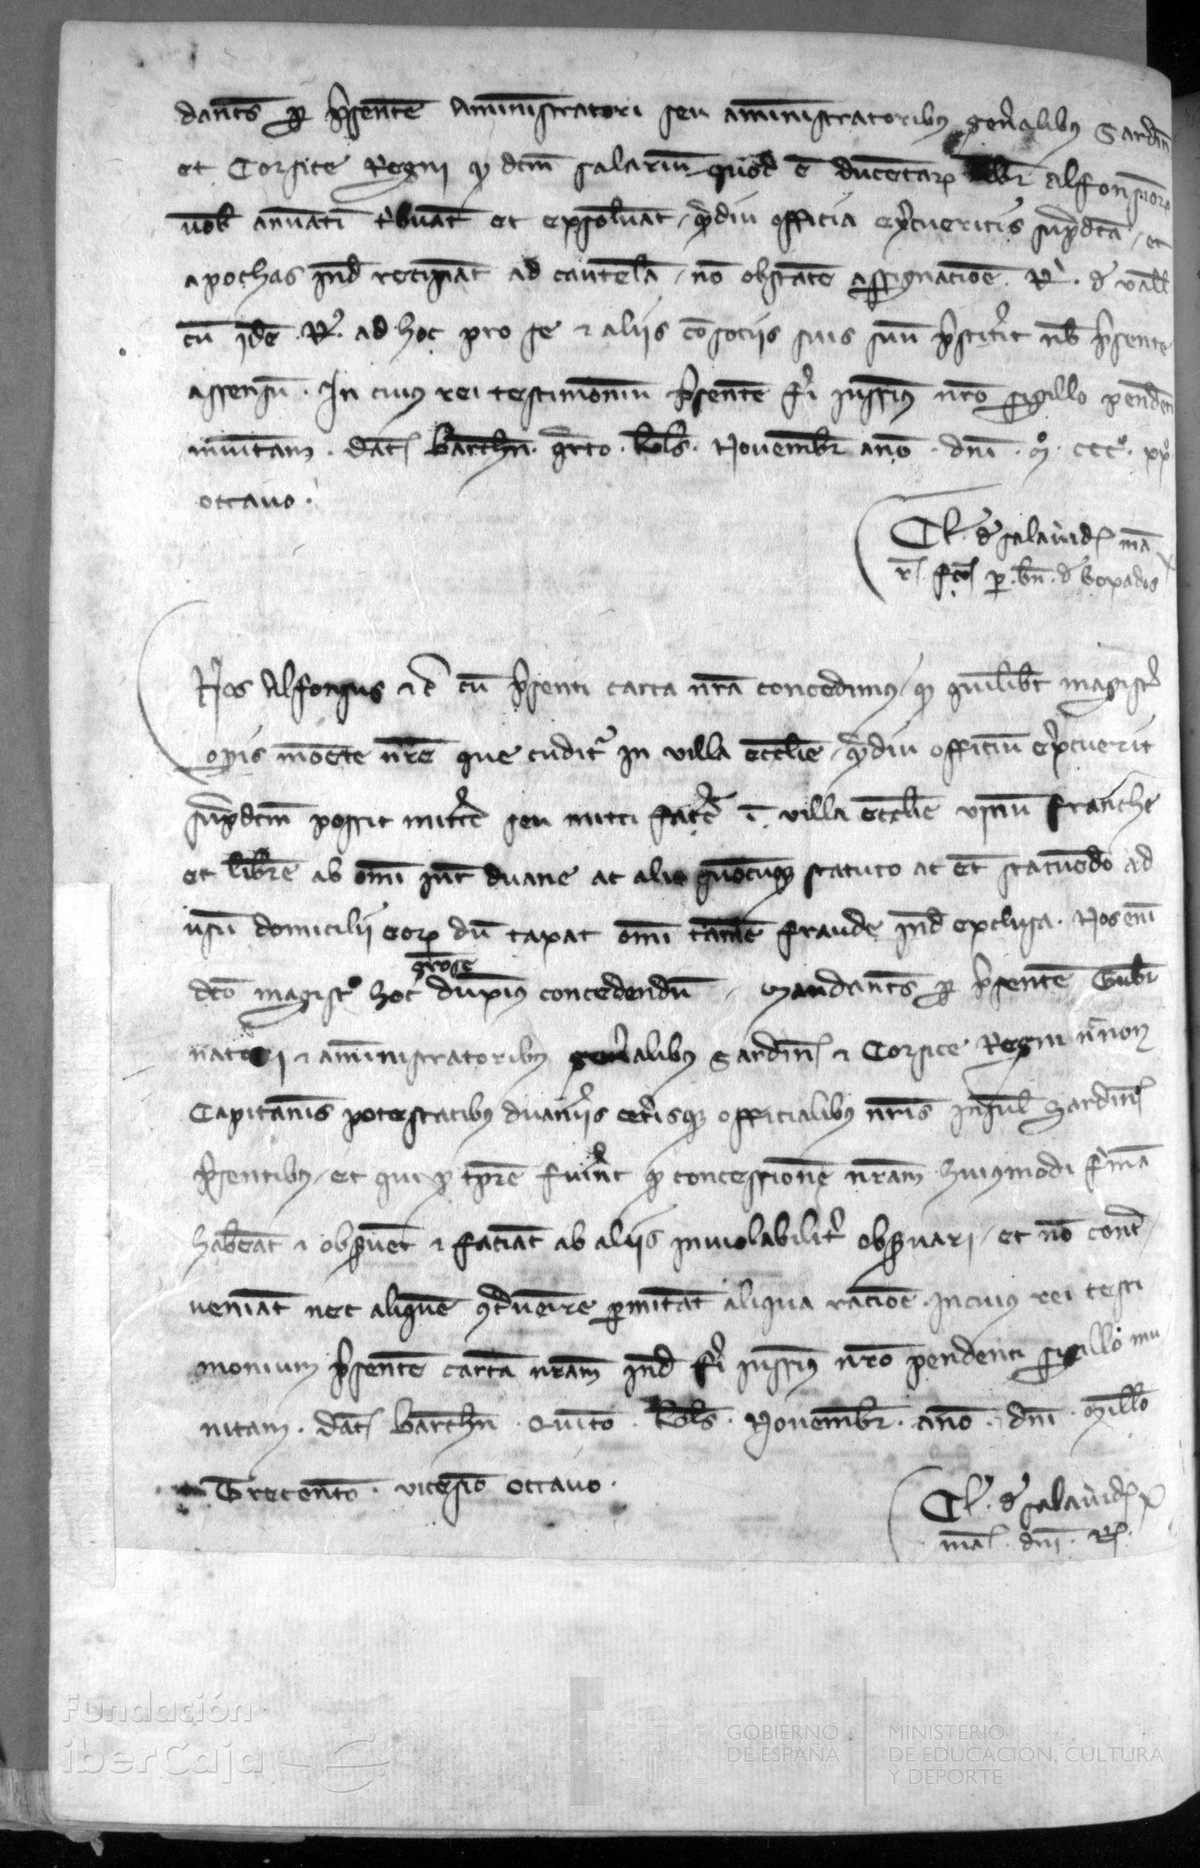 dantes p presente Aministratori seu aministratoribus generalibus Sardin
et Corsice Regni q dcm salarium quod e ducentar libr alfonsinor
uob annuati tbuat et exsoluat / qdiu officia exercueritis supdcta / et
apochas ind recipiat ad cautela / no obstate assignacioe R. de vall
cu ide R. ad hoc pro se et aliis cosociis suis suu pstiterit nob psente
assensu . In cuius rei testimoniu psente fi iussim nro sigillo pendeti
munitam . dat barchn qrto . kls . Nouembr ano . dni . M . ccc . xx
octauo .
Cl . d salauid ma
r fco p . bn . d boxados
Nos Alfonsus etc cu psenti carta nra concedimus / q quilibet magister
opis monete nre que cuditr in villa ecclie / qdiu officiu exercuerit
supdcm possit mittere seu mitti facere i villa ecclie vinu franche
et libere ab omi iure duane ac alio quocuq statuto ac et statuedo ad
usu domicilii eor du taxat omi tame fraude ind exclusa . Nos eni
grose
dco magistro hoc duximus concedendu . Mandantes p psente Gubr
natori et aministratoribus generalibus Sardin et Corsice Regni nnon
Capitaneis potestatibus duaneriis ceterisq officialibus nris insul Sardin
psentibus / et qui p tpre fuerint q concessione nram huiusmodi firma
habeat et obseruet et faciat ab aliis inuiolabiliter obseruari / et no contr
ueniat nec alique contrauenire pmittat aliqua racioe . In cuius rei testi
monium psente carta nram ind fi iussim nro pendenti sigillo mu
nitam . dat barchn . Quito . kls . Nouembr . ano . dni . Millo
Trecento . vicesio octauo .
Cl . d salauid
ma . dni . R .
Fundación
iberCaja
GOBIERNO
DE ESPAÑA
MINISTERIO
DE EDUCACIÓN, CULTURA
Y DEPORTE